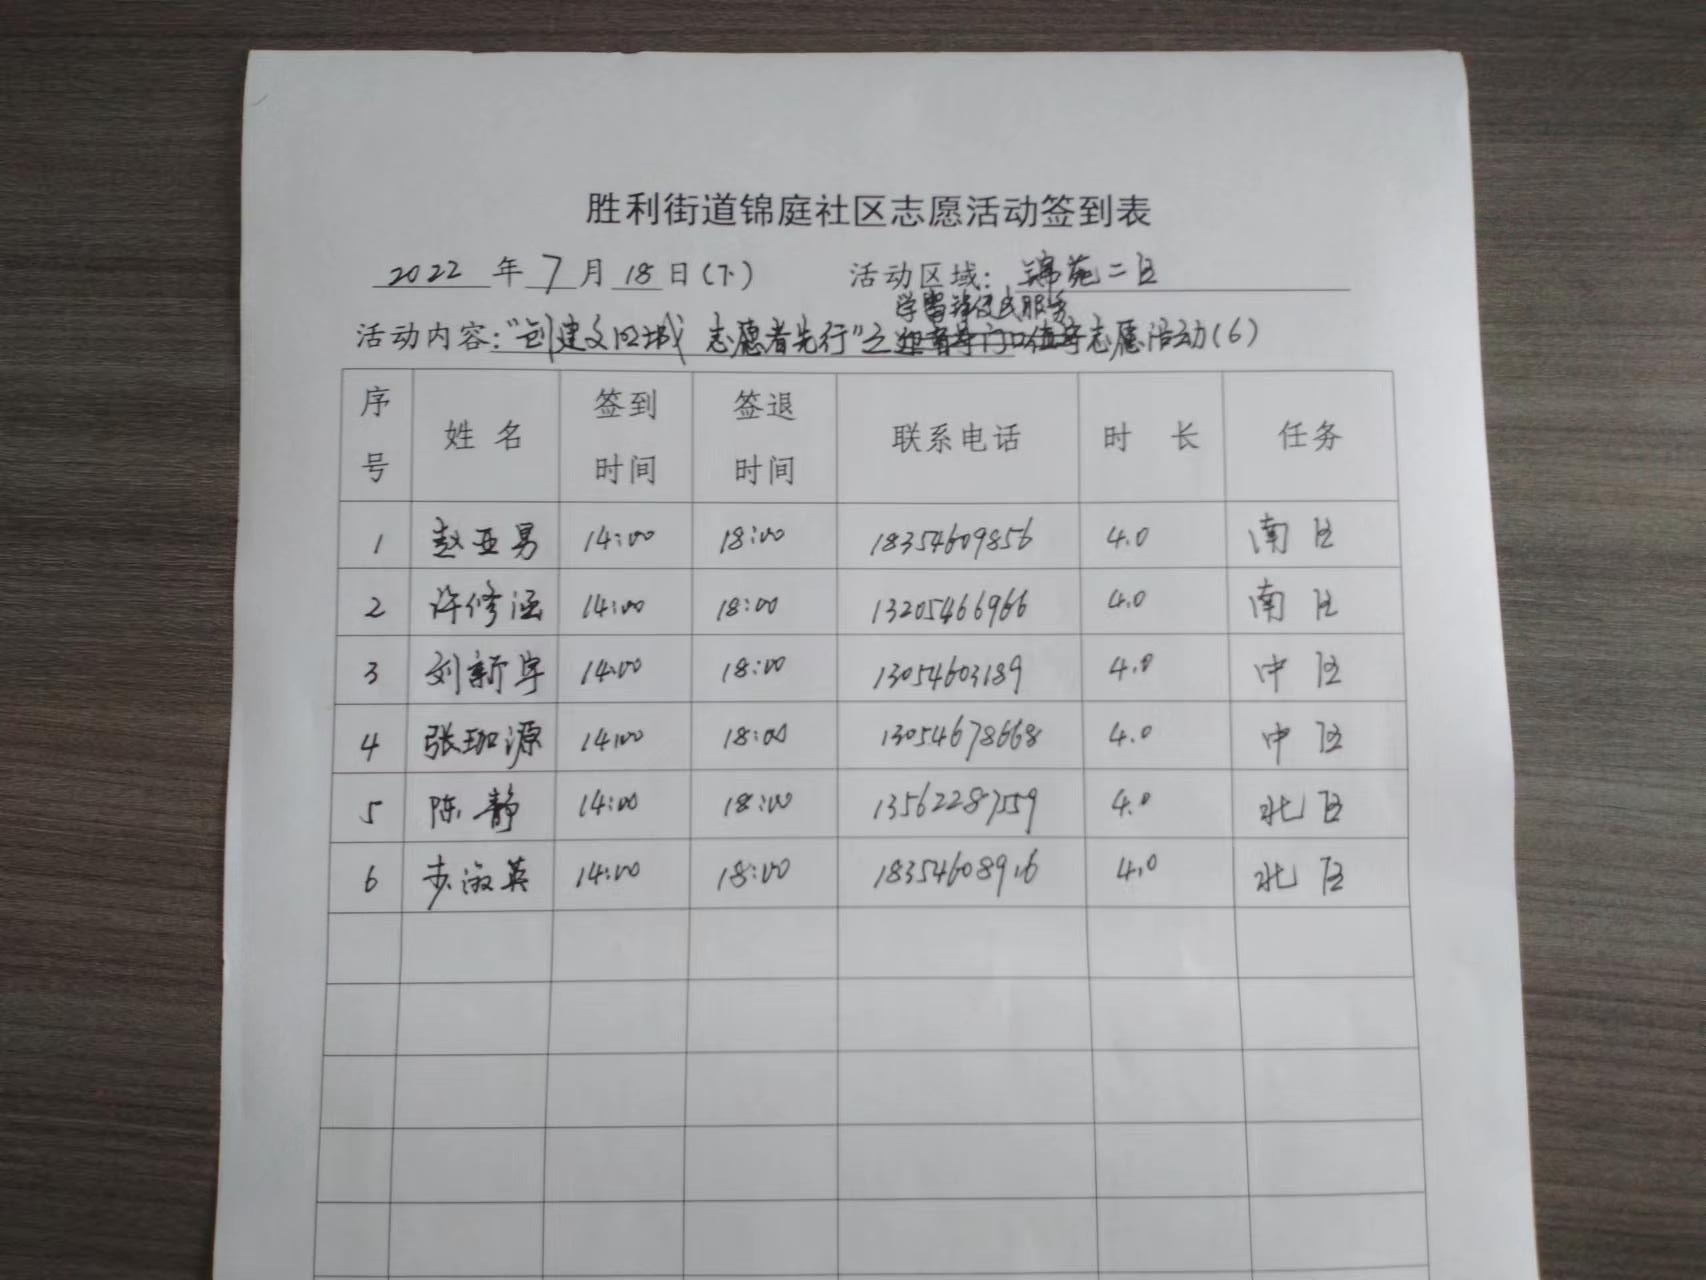 胜利街道锦庭社区志愿活动签到表
2022 年 7 月 18 日(下) 活动区域: 锦苑二区
服务
活动内容:"创建文明城 志愿者先行"之 志愿活动(6)
序号 姓名 签到时间 签退时间 联系电话 时长 任务
1 赵亚男 14:00 18:00 18354609856 4.0 南区
2 许修涵 14:00 18:00 13205466966 4.0 南区
3 刘新宇 14:00 18:00 13054603189 4.0 中区
4 张珈源 14:00 18:00 13054678668 4.0 中区
5 陈静 14:00 18:00 13562287559 4.0 北区
6 步淑英 14:00 18:00 18354608916 4.0 北区